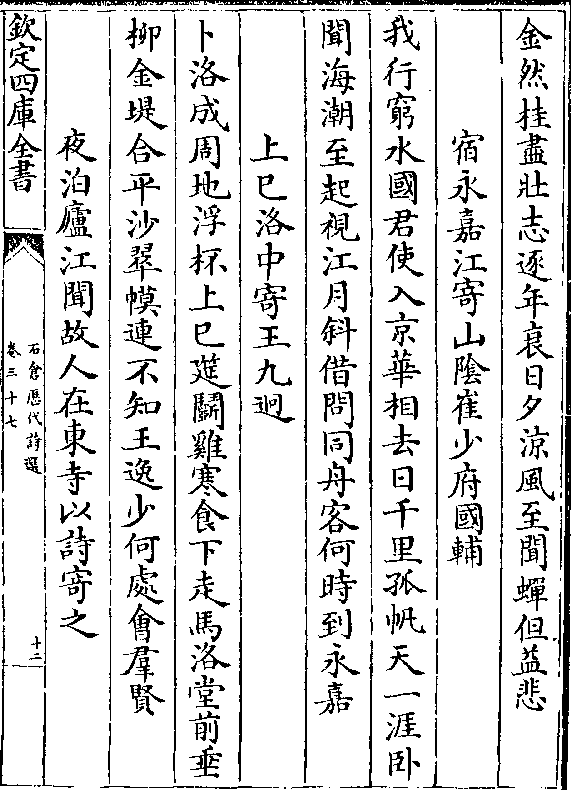 金然桂盡壯志逐年衰日夕涼風至聞蟬但益悲
宿永嘉江寄山陰崔少府國輔
我行窮水國君使入京華相去日千里孤帆天一涯卧
聞海潮至起視江月斜借問同舟客何時到永嘉
上巳洛中寄王九迥
卜洛成周地浮杯上巳筵鬭雞寒食下走馬洛堂前垂
柳金堤合平沙翠幙連不知王逸少何處會羣賢
夜泊廬江聞故人在東寺以詩寄之
欽定四庫全書
石倉歷代詩選
卷三十七
十二